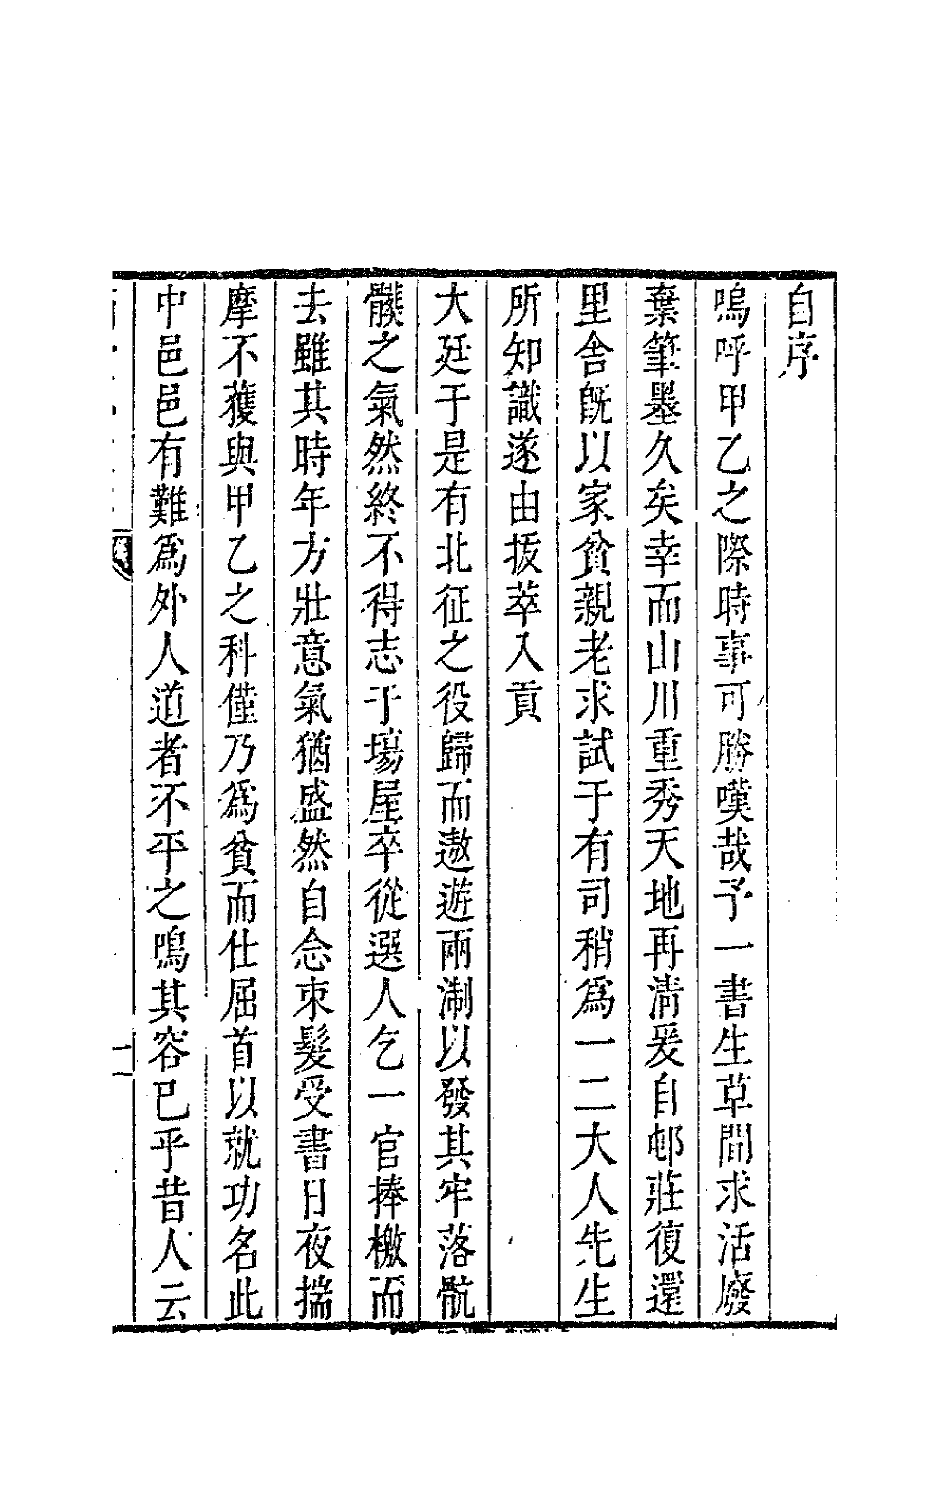 自序
嗚呼甲乙之際時事可勝嘆哉予一書生草間求活廢
棄筆墨久矣幸而山川重秀天地再淸爰自邨莊復還
里舍旣以家貧親老求試于有司稍爲一二大人先生
所知識遂由拔萃入貢
大廷于是有北征之役歸而遨遊兩淛以發其牢落骯
髒之氣然終不得志于場屋卒從選人乞一官捧檄而
去雖其時年方壯意氣猶盛然自念束髮受書日夜揣
摩不獲與甲乙之科僅乃爲貧而仕屈首以就功名此
中邑邑有難爲外人道者不平之鳴其容已乎昔人云